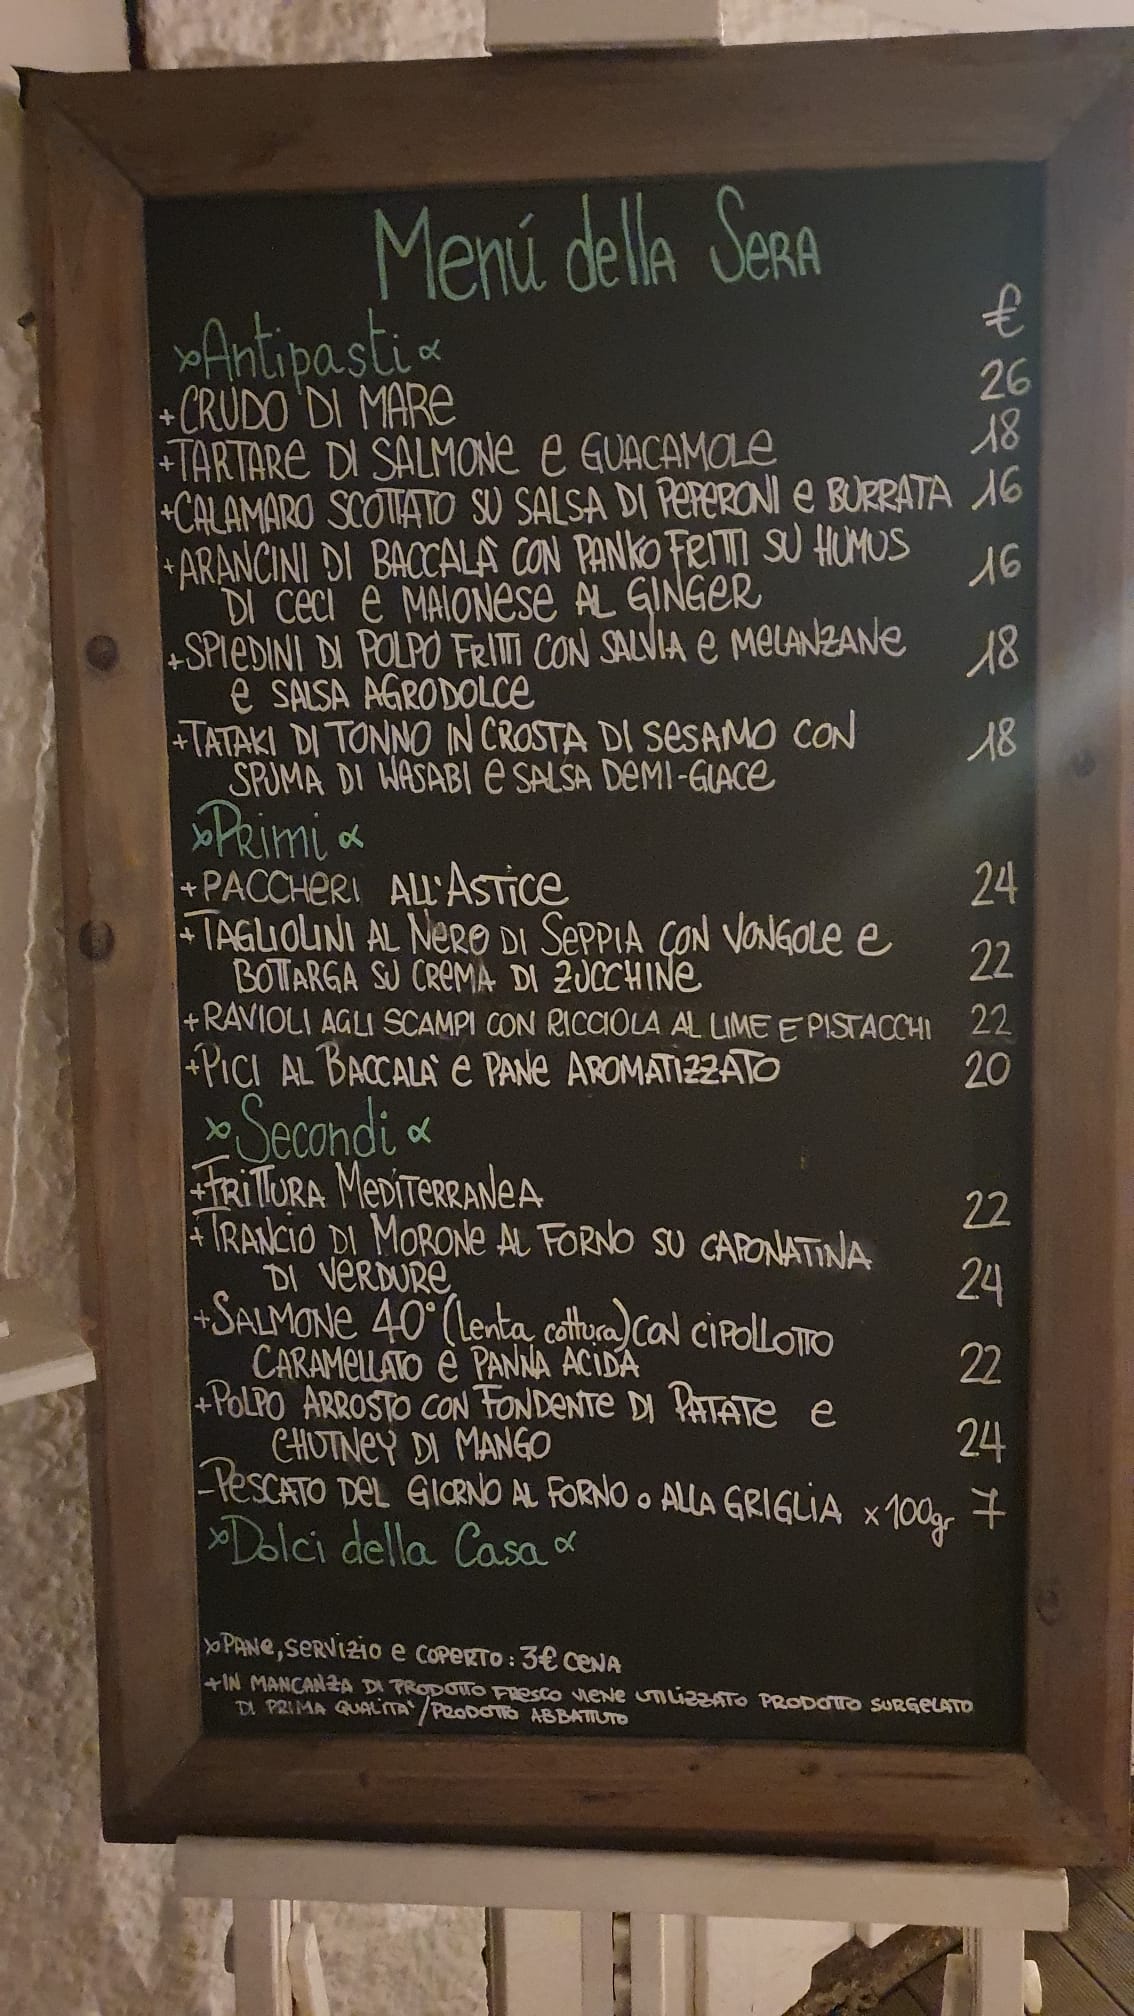 Menú della Sera
€
Antipasti
+CRUDO DI MARE 26
+TARTARE DI SALMONE E GUACAMOLE 18
+CALAMARO SCOTTATO SU SALSA DI PEPERONI E BURRATA 16
+ARANCINI DI BACCALÀ CON PANKO FRITTI SU HUMUS
DI CECI E MAIONESE AL GINGER 16
+SPIEDINI DI POLPO FRITTI CON SALVIA E MELANZANE
E SALSA AGRODOLCE 18
+TATAKI DI TONNO IN CROSTA DI SESAMO CON
SPUMA DI WASABI E SALSA DEMI-GLACE 18
Primi
+PACCHERI ALL'ASTICE 24
+TAGLIOLINI AL NERO DI SEPPIA CON VONGOLE E
BOTTARGA SU CREMA DI ZUCCHINE 22
+RAVIOLI AGLI SCAMPI CON RICCIOLA AL LIME E PISTACCHI 22
+PICI AL BACCALA' E PANE AROMATIZZATO 20
Secondi
+FRITTURA MEDITERRANEA 22
+TRANCIO DI MORONE AL FORNO SU CAPONATINA
DI VERDURE 24
+SALMONE 40° (lenta cottura) CON CIPOLLOTTO
CARAMELLATO E PANNA ACIDA 22
+POLPO ARROSTO CON FONDENTE DI PATATE E
CHUTNEY DI MANGO 24
-PESCATO DEL GIORNO AL FORNO O ALLA GRIGLIA x 100gr 7
Dolci della Casa
PANE, SERVIZIO E COPERTO: 3€ CENA
+IN MANCANZA DI PRODOTTO FRESCO VIENE UTILIZZATO PRODOTTO SURGELATO
DI PRIMA QUALITA'/PRODOTTO ABBATTUTO